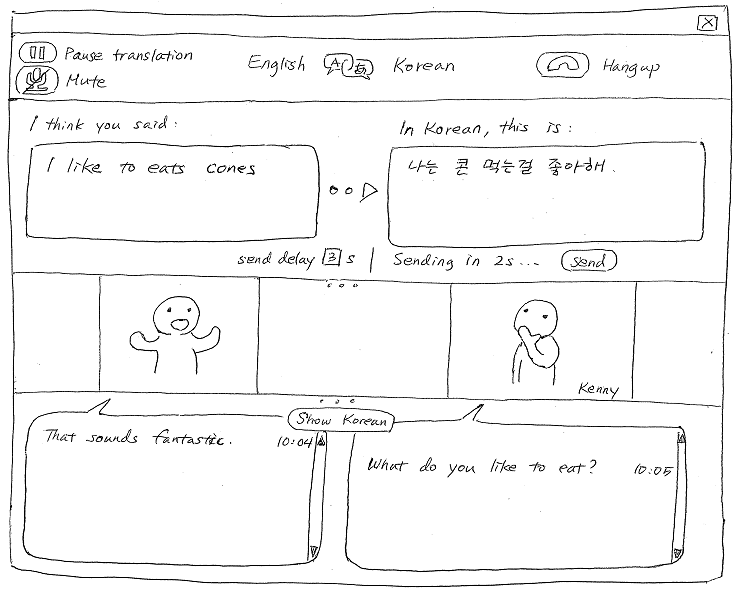 Pause translation
English A あ Korean
Hangup
Mute
I think you said:
In Korean, this is:
I like to eats cones
나는 콘 먹는걸 좋아해.
send delay 3 s | Sending in 2s... send
Kenny
Show Korean
That sounds fantastic. 10:04
What do you like to eat? 10:05